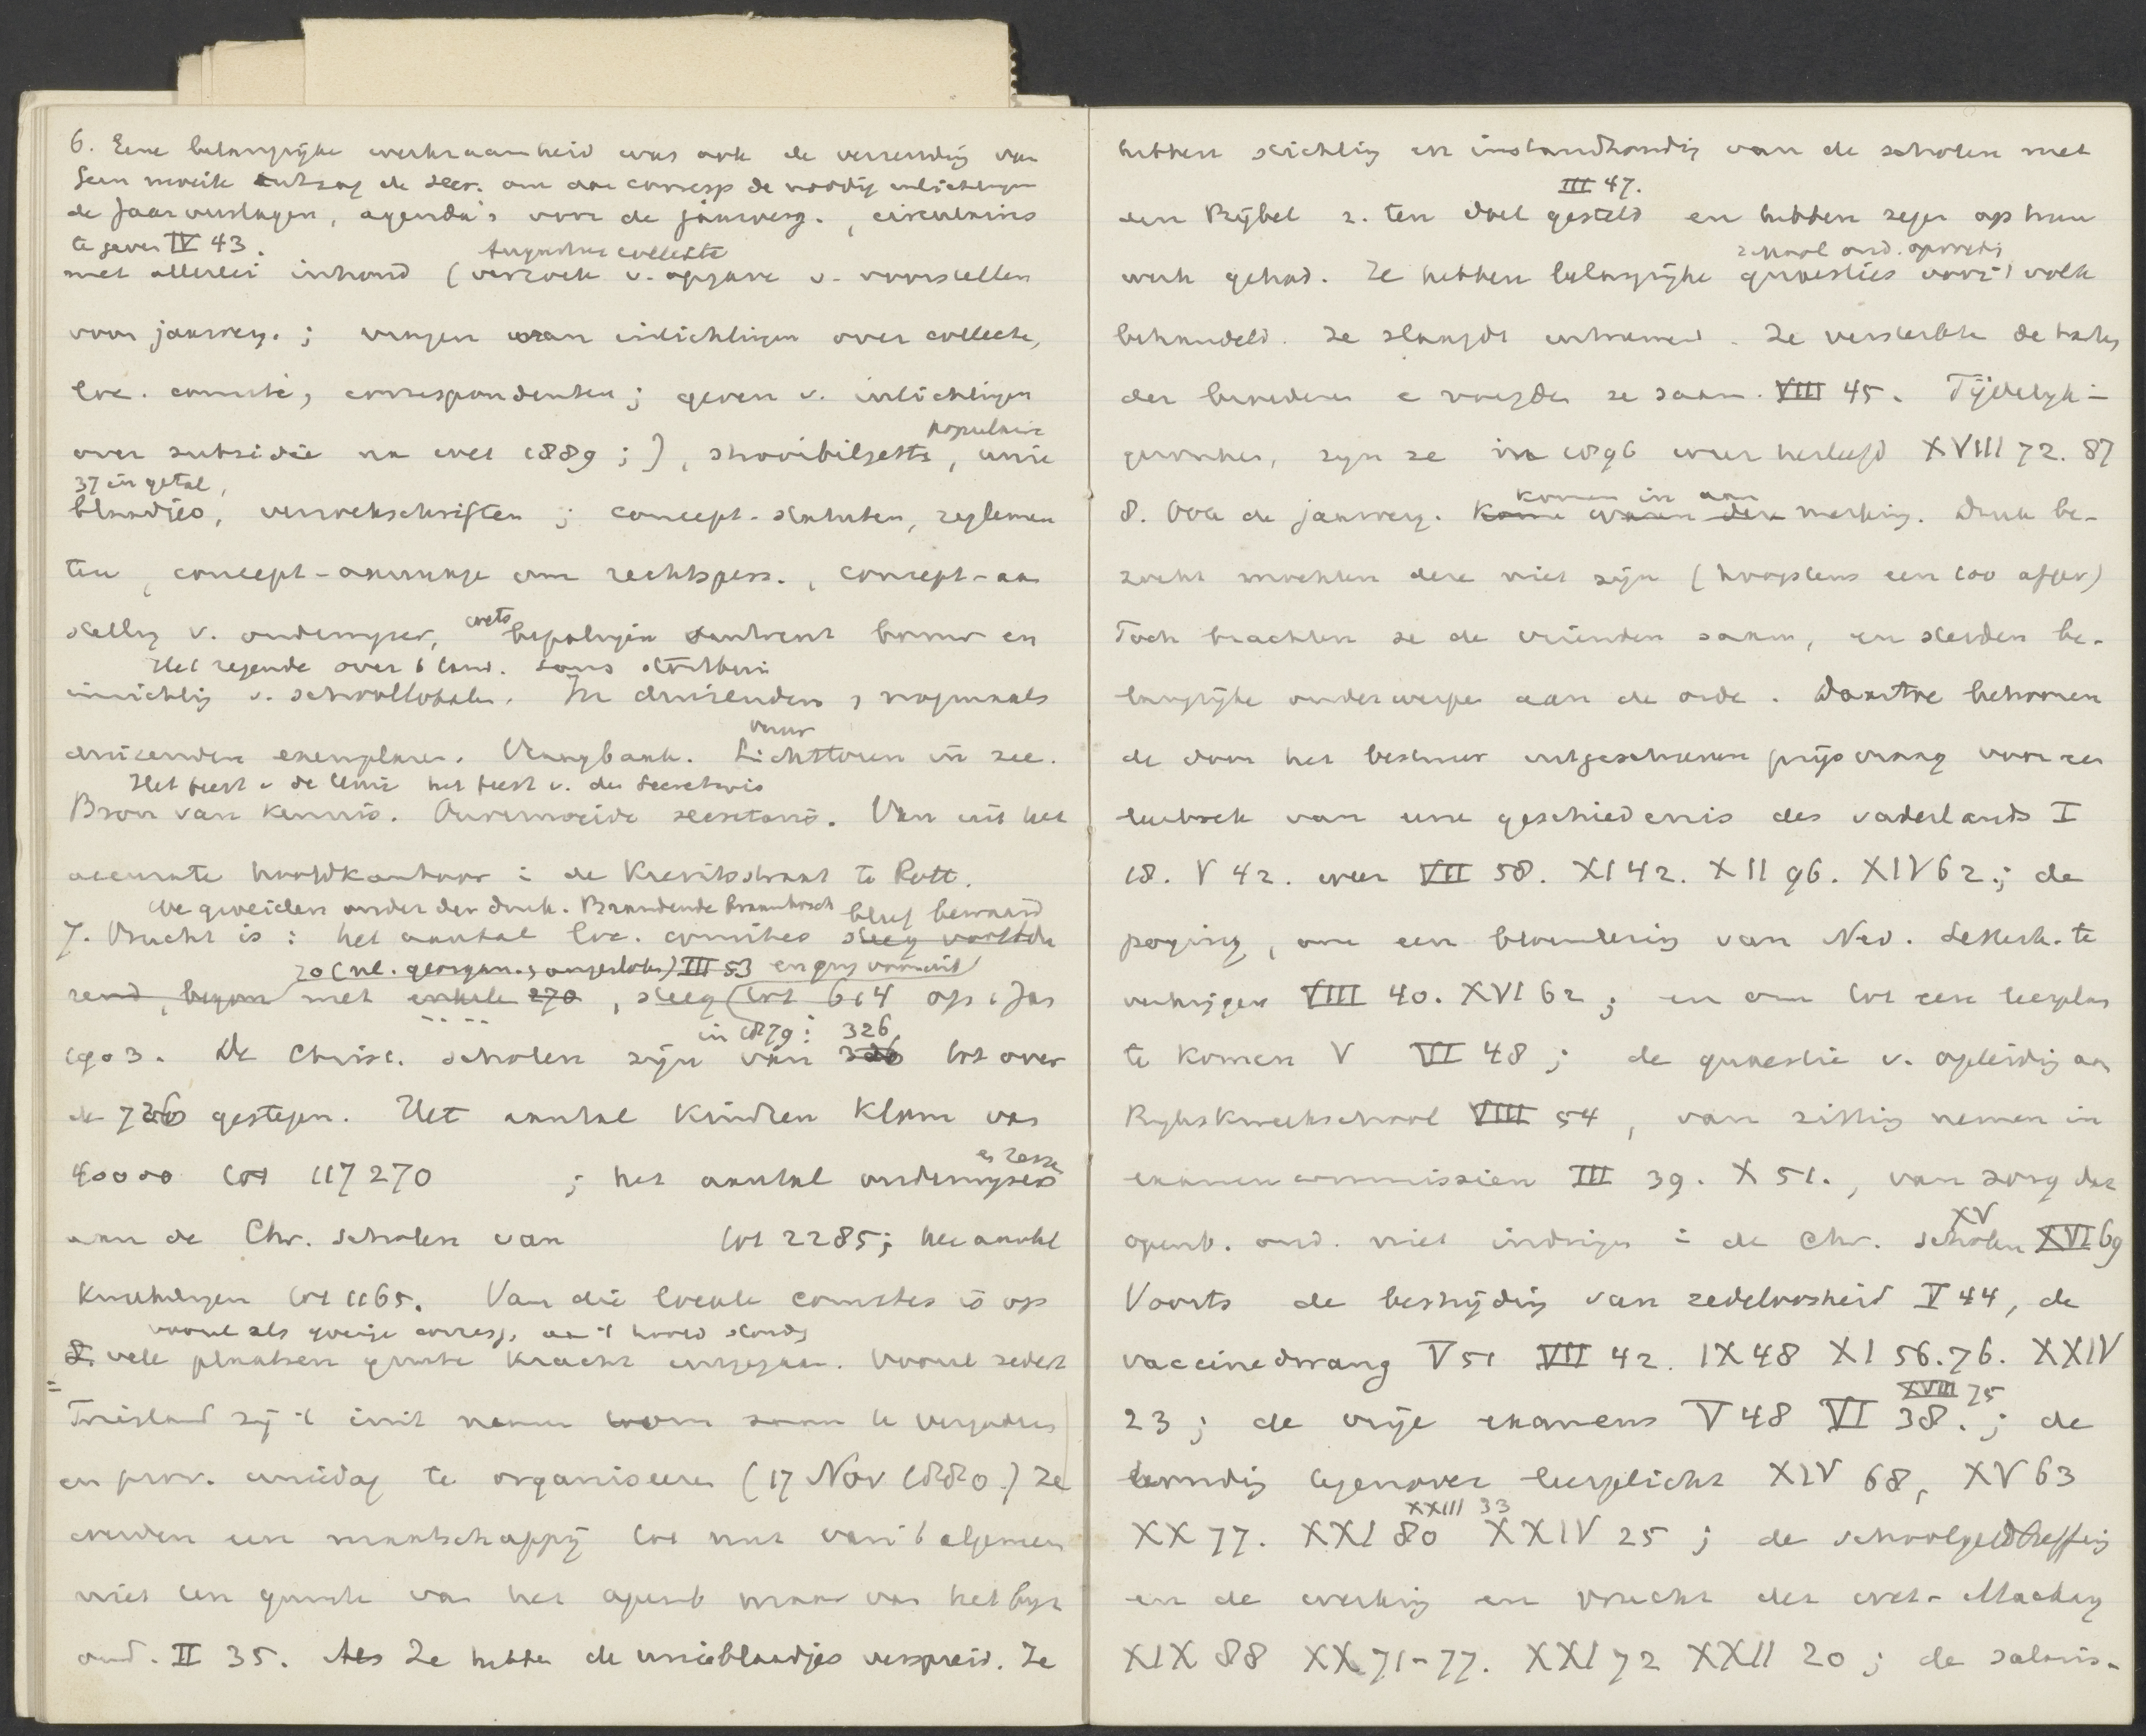 6. Eene belangrijke werkzaamheid was ook de verzending van
Geen moeite ontzag de secr. om aan corresp de noodige inlichtingen
de Jaarverslagen, agenda's voor de jaarverg., circulaires
te geven IV 43.
Augustus collecte
met allerlei inhoud (verzoek v. opgave v. voorstellen
voor jaarverg.; vragen van inlichtingen over collecte,
loc. comité, correspondenten; geven v. inlichtingen
populaire
over subsidie na wet 1889;), strooibiljetten, unie
37 in getal,
blaadjes, verzoekschriften; concept-statuten, reglemen
ten, concept-aanvrage om rechtspers., concept-aan
stelling v. onderwijzer, wets bepalingen omtrent bouw en
Het regende over 't land. Soms stortbui
inrichting v. schoollokalen. In duizenden, nogmaals
vuur
duizenden exemplaren. Vraagbaak. Lichttoren in zee.
Het feest v de Unie het feest v. den Secretaris
Bron van kennis. Onvermoeide secretaris. Van uit het
accurate hoofdkantoor i de Kievitsstraat te Rott.
We groeiden onder den druk. Brandende braambosch bleef bewaard
7. Vrucht is: het aantal loc. comités steeg voortdu
20 (nl. georgan. aangesloten) III 53 en ging vooruit
rend, begon met enkele 270, steeg tot 614 op 1 Jan
in 1879: 326
1903. De Christ. scholen zijn van tot over
de 700 gestegen. Het aantal kinderen klom van
40000 tot 117270 ; het aantal onderwijzers
aan de Chr. scholen van tot 2285; het aantal
Kweekelingen tot 1165. Van die locale comités is op
vooral als goede corresp. aan 't hoofd stond
vele plaatsen groote kracht uitgegaan. Vooral sedert
Friesland zij 't init namen om saam te vergaderen
en prov. uniedag te organiseeren (17 Nov 1880.) Ze
werden een maatschappij tot nut van 't algemeen
niet ten gunste van het openb maar van het bijz
ond. II 35. Als Ze hebben de unieblaadjes verspreid. Ze
hebben stichting en instandhouding van de scholen met
III 47.
den Bijbel z. ten doel gesteld en hebben zegen op hun
school ond. opvoeding
werk gehad. Ze hebben belangrijke quaesties voor 't volk
behandeld. Ze slaagde uitnemend. Ze versterkte de band
der broederen e voegden ze saam. VIII 45. Tijdelijk in-
gezonken, zijn ze in 1896 weer herleefd XVIII 72. 87
komen in aan
8. Ook de jaarverg. Komen merking. Druk be-
zocht mochten deze niet zijn (hoogstens een 100 afgev)
Toch brachten ze de vrienden saam, en stelden be-
langrijke onderwerpen aan de orde. Daartoe behooren
de door het bestuur uitgeschreven prijsvraag voor een
leerboek van eene geschiedenis des vaderlands I
18. V 42. weer VII 58. XI 42. XII 96. XIV 62.; de
poging, om een bloemlezing van Ned. Letterk. te
verkrijgen VIII 40. XVI 62; en om tot een leerplan
te komen V VI 48; de quaestie v. opleiding aan
Rijkskweekschool VIII 54, van zitting nemen in
examencommissien III 39. X 51., van zorg dat
XV
openb. ond. niet indringe i de Chr. scholen XVI 69
Voorts de bestrijding van zedeloosheid V 44, de
vaccinedwang V 51 VII 42. IX 48 XI 56. 76. XXIV
XVIII 75
23; de vrije examens V 48 VI 38.; de
houding tegenover leerplicht XIV 68, XV 63
XXIII 33
XX 77. XXI 80 XXIV 25; de schoolgeldheffing
en de werking en vrucht der wet-Mackay
XIX 88 XX 71-77. XXI 72 XXII 20; de salaris-